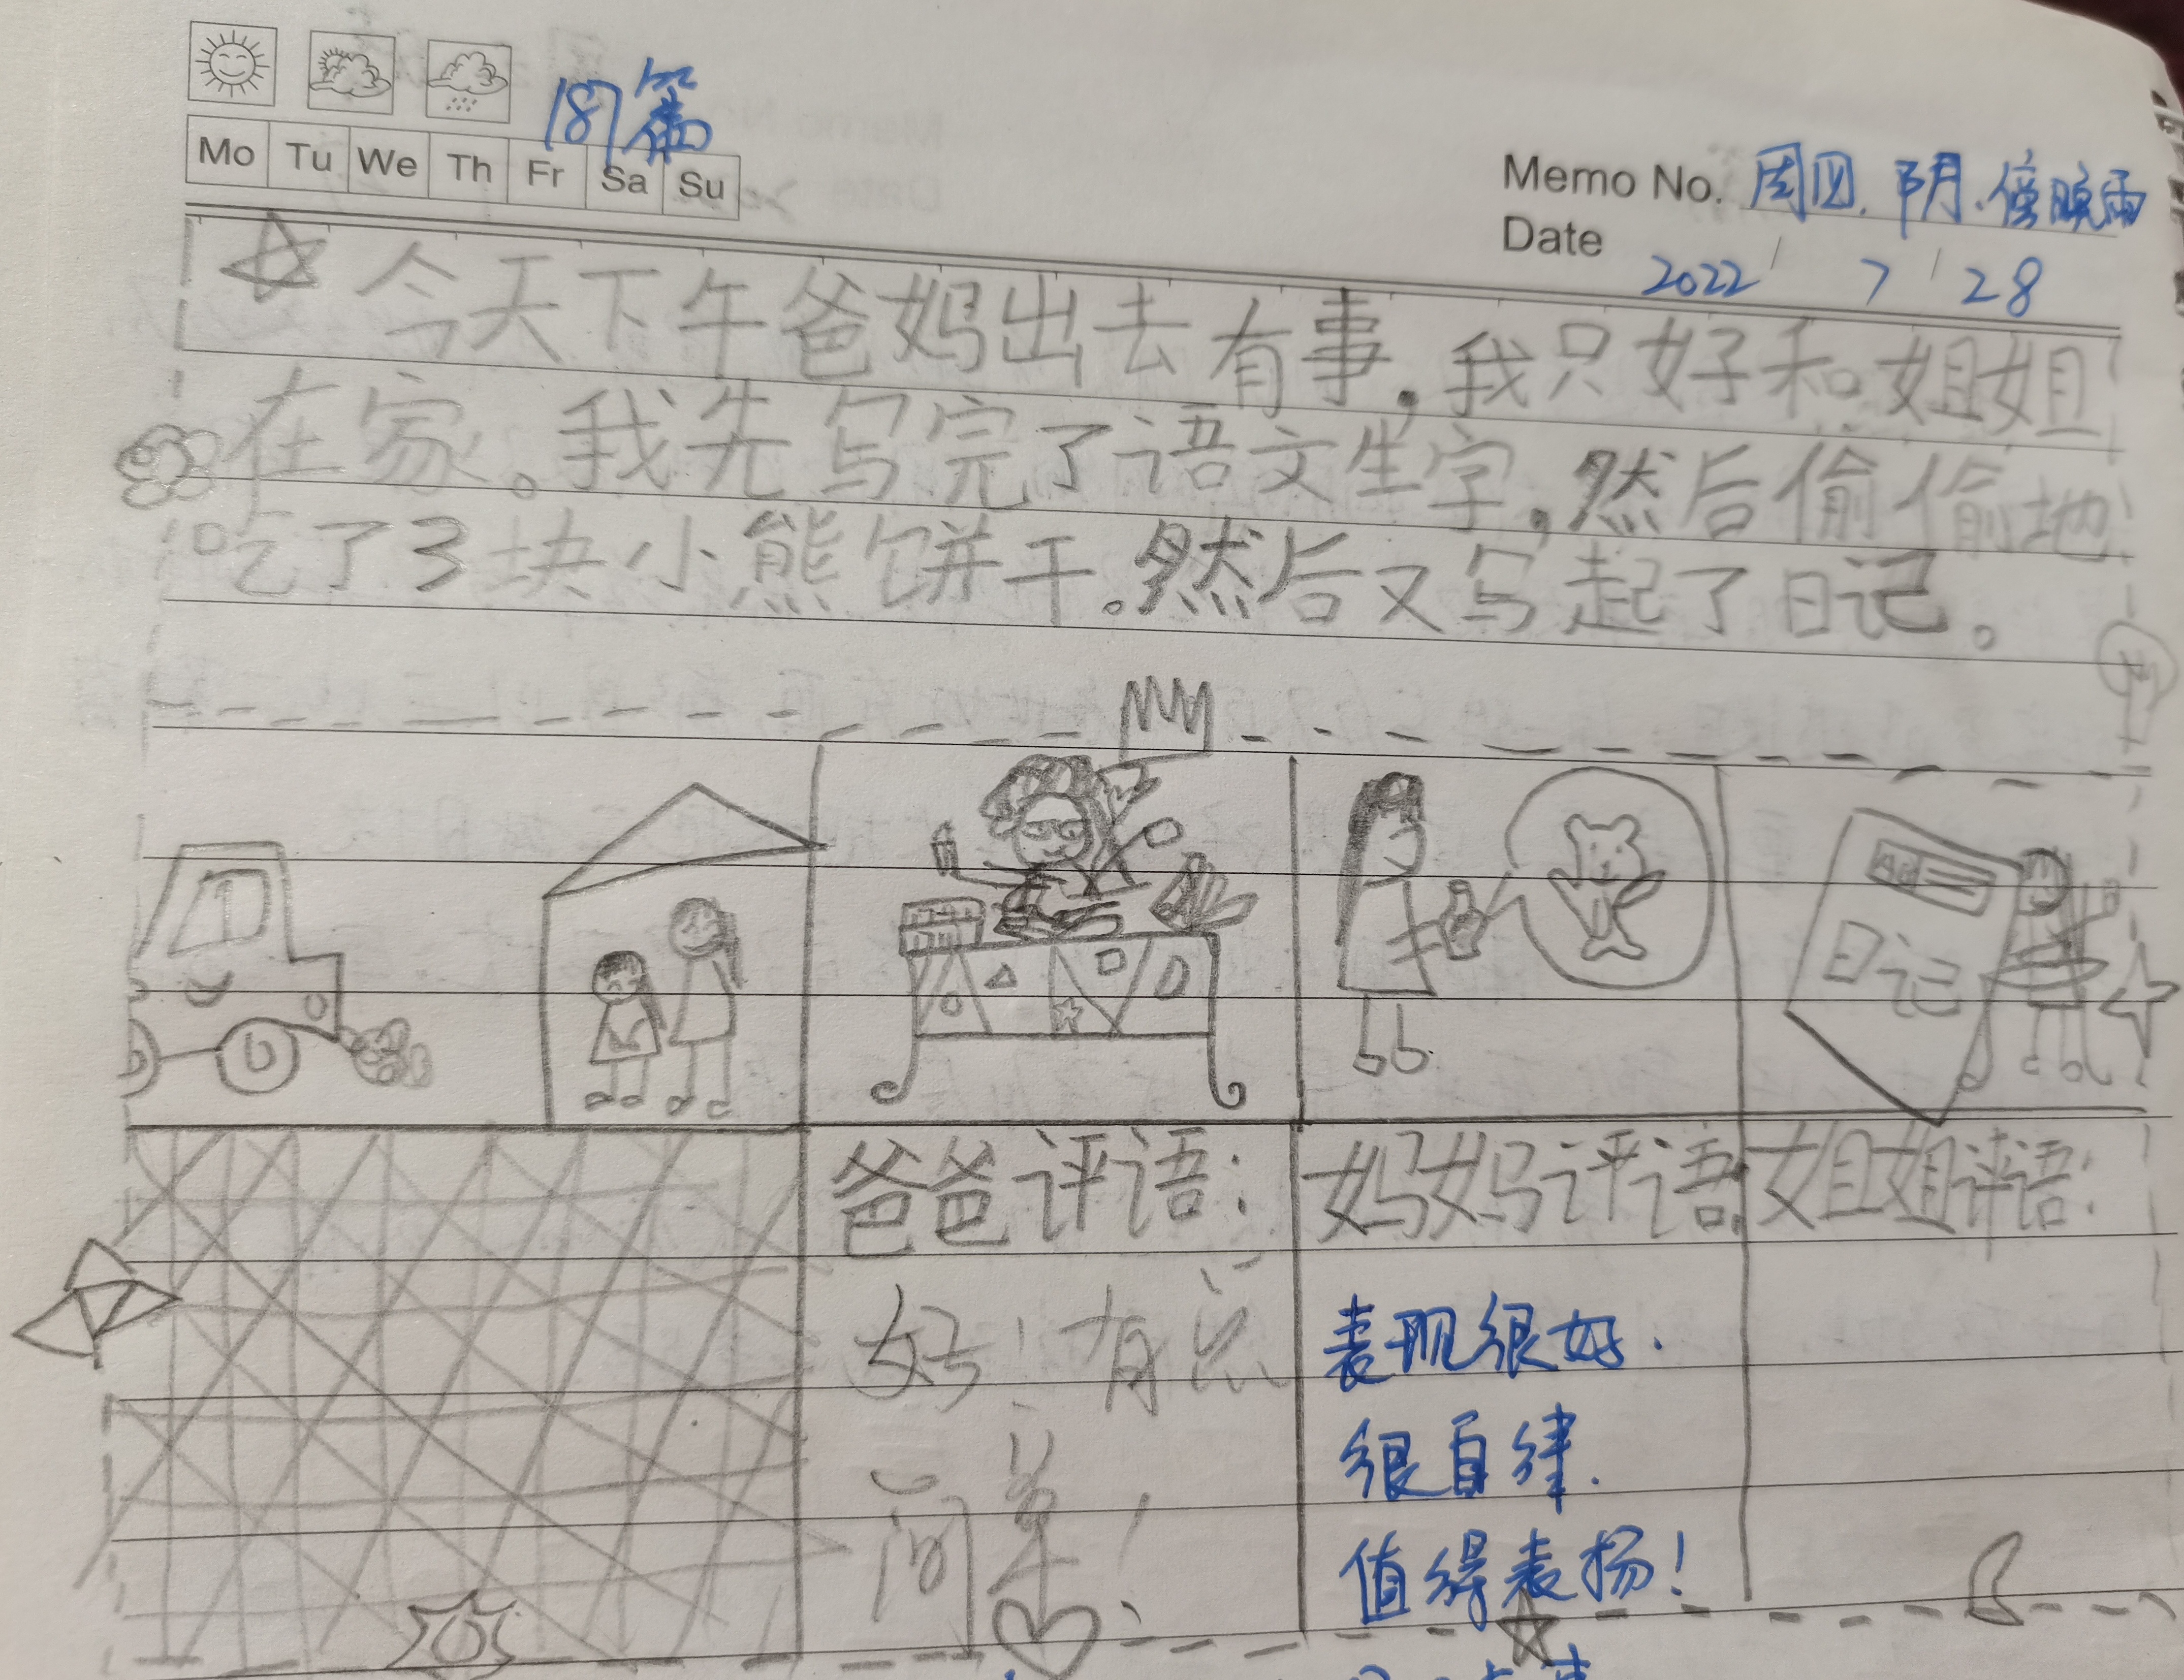 187篇
Mo Tu We Th Fr Sa Su
Memo No. 周四.阴.傍晚雨
Date 2022 / 7 / 28
今天下午爸妈出去有事,我只好和姐姐
在家。我先写完了语文生字,然后偷偷地
吃了3块小熊饼干。然后又写起了日记。
日记
爸爸评语:
好!有点
简单!
妈妈评语:
表现很好.
很自律.
值得表扬!
姐姐评语: